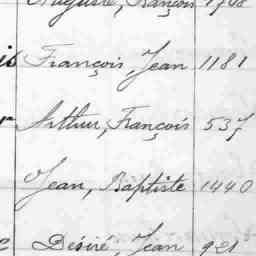 Auguste, François 1748
is François, Jean 1181
r Arthur, François 537
Jean, Baptiste 1440
e Désiré, Jean 921